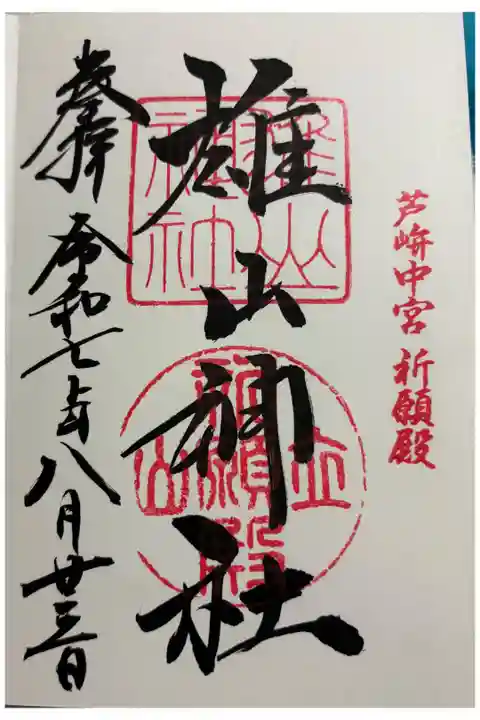 芦峅中宮 祈願殿
雄山神社
奉拝 令和七年八月廿三日
雄山神社
立山
祈願殿